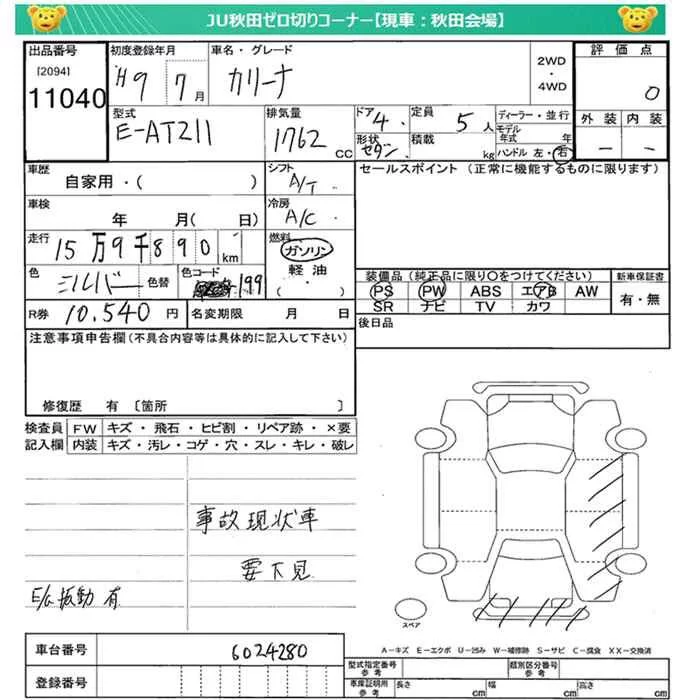 JU秋田ゼロ切りコーナー【現車：秋田会場】
出品番号 初度登録年月 車名・グレード 2WD・4WD 評価点
[2094] H9 7月 カリーナ 0
11040 型式 排気量 ドア 4 定員 5人 ディーラー・並行 外装 内装
E-AT211 1762 cc 形状 セダン 積載 kg モデル年式 年 － －
ハンドル 左・右
車歴 シフト セールスポイント（正常に機能するものに限ります）
自家用・( ) A/T
車検 冷房
年 月( 日) A/C
走行 15万9千890km 燃料
ガソリン
色 シルバー 色替 色コード 199 軽油 装備品（純正品に限り○をつけてください） 新車保証書
・ PS PW ABS エアB AW 有・無
( ) SR ナビ TV カワ
R券 10,540円 名変期限 月 日 後日品
注意事項申告欄（不具合内容等は具体的に記入して下さい）
修復歴 有 〔箇所 〕
検査員 FW キズ・飛石・ヒビ割・リペア跡・×要
記入欄 内装 キズ・汚レ・コゲ・穴・スレ・キレ・破レ
事故現状車
要下見
E/G振動 有
スペア
A－キズ E－エクボ U－凹み W－補修跡 S－サビ C－腐食 XX－交換済
車台番号 6024280 型式指定番号 参考 類別区分番号 参考
登録番号 車庫証明用 参考 長さ cm 幅 cm 高さ cm